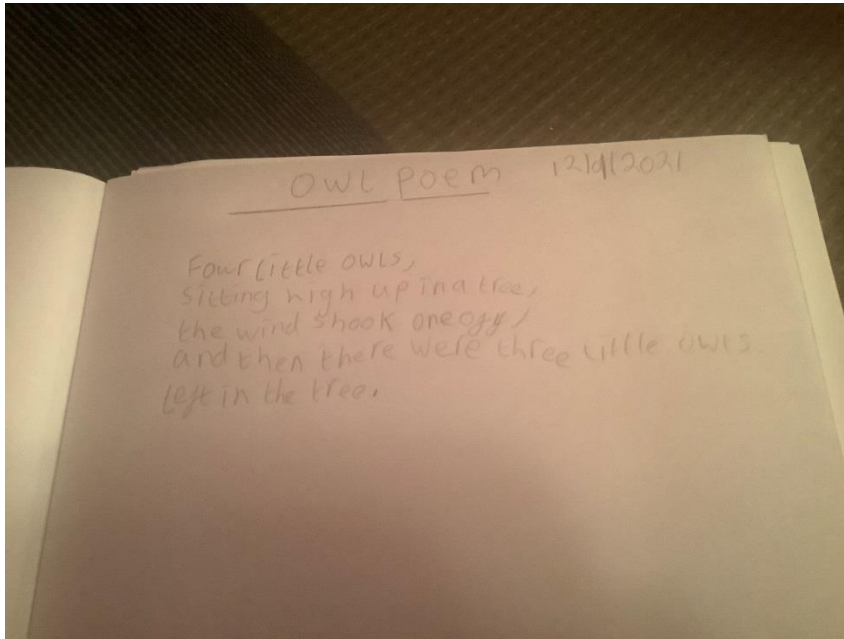 Owl Poem 12/9/2021
Four little owls,
sitting high up in a tree,
the wind shook one off,
and then there were three little owls
left in the tree.